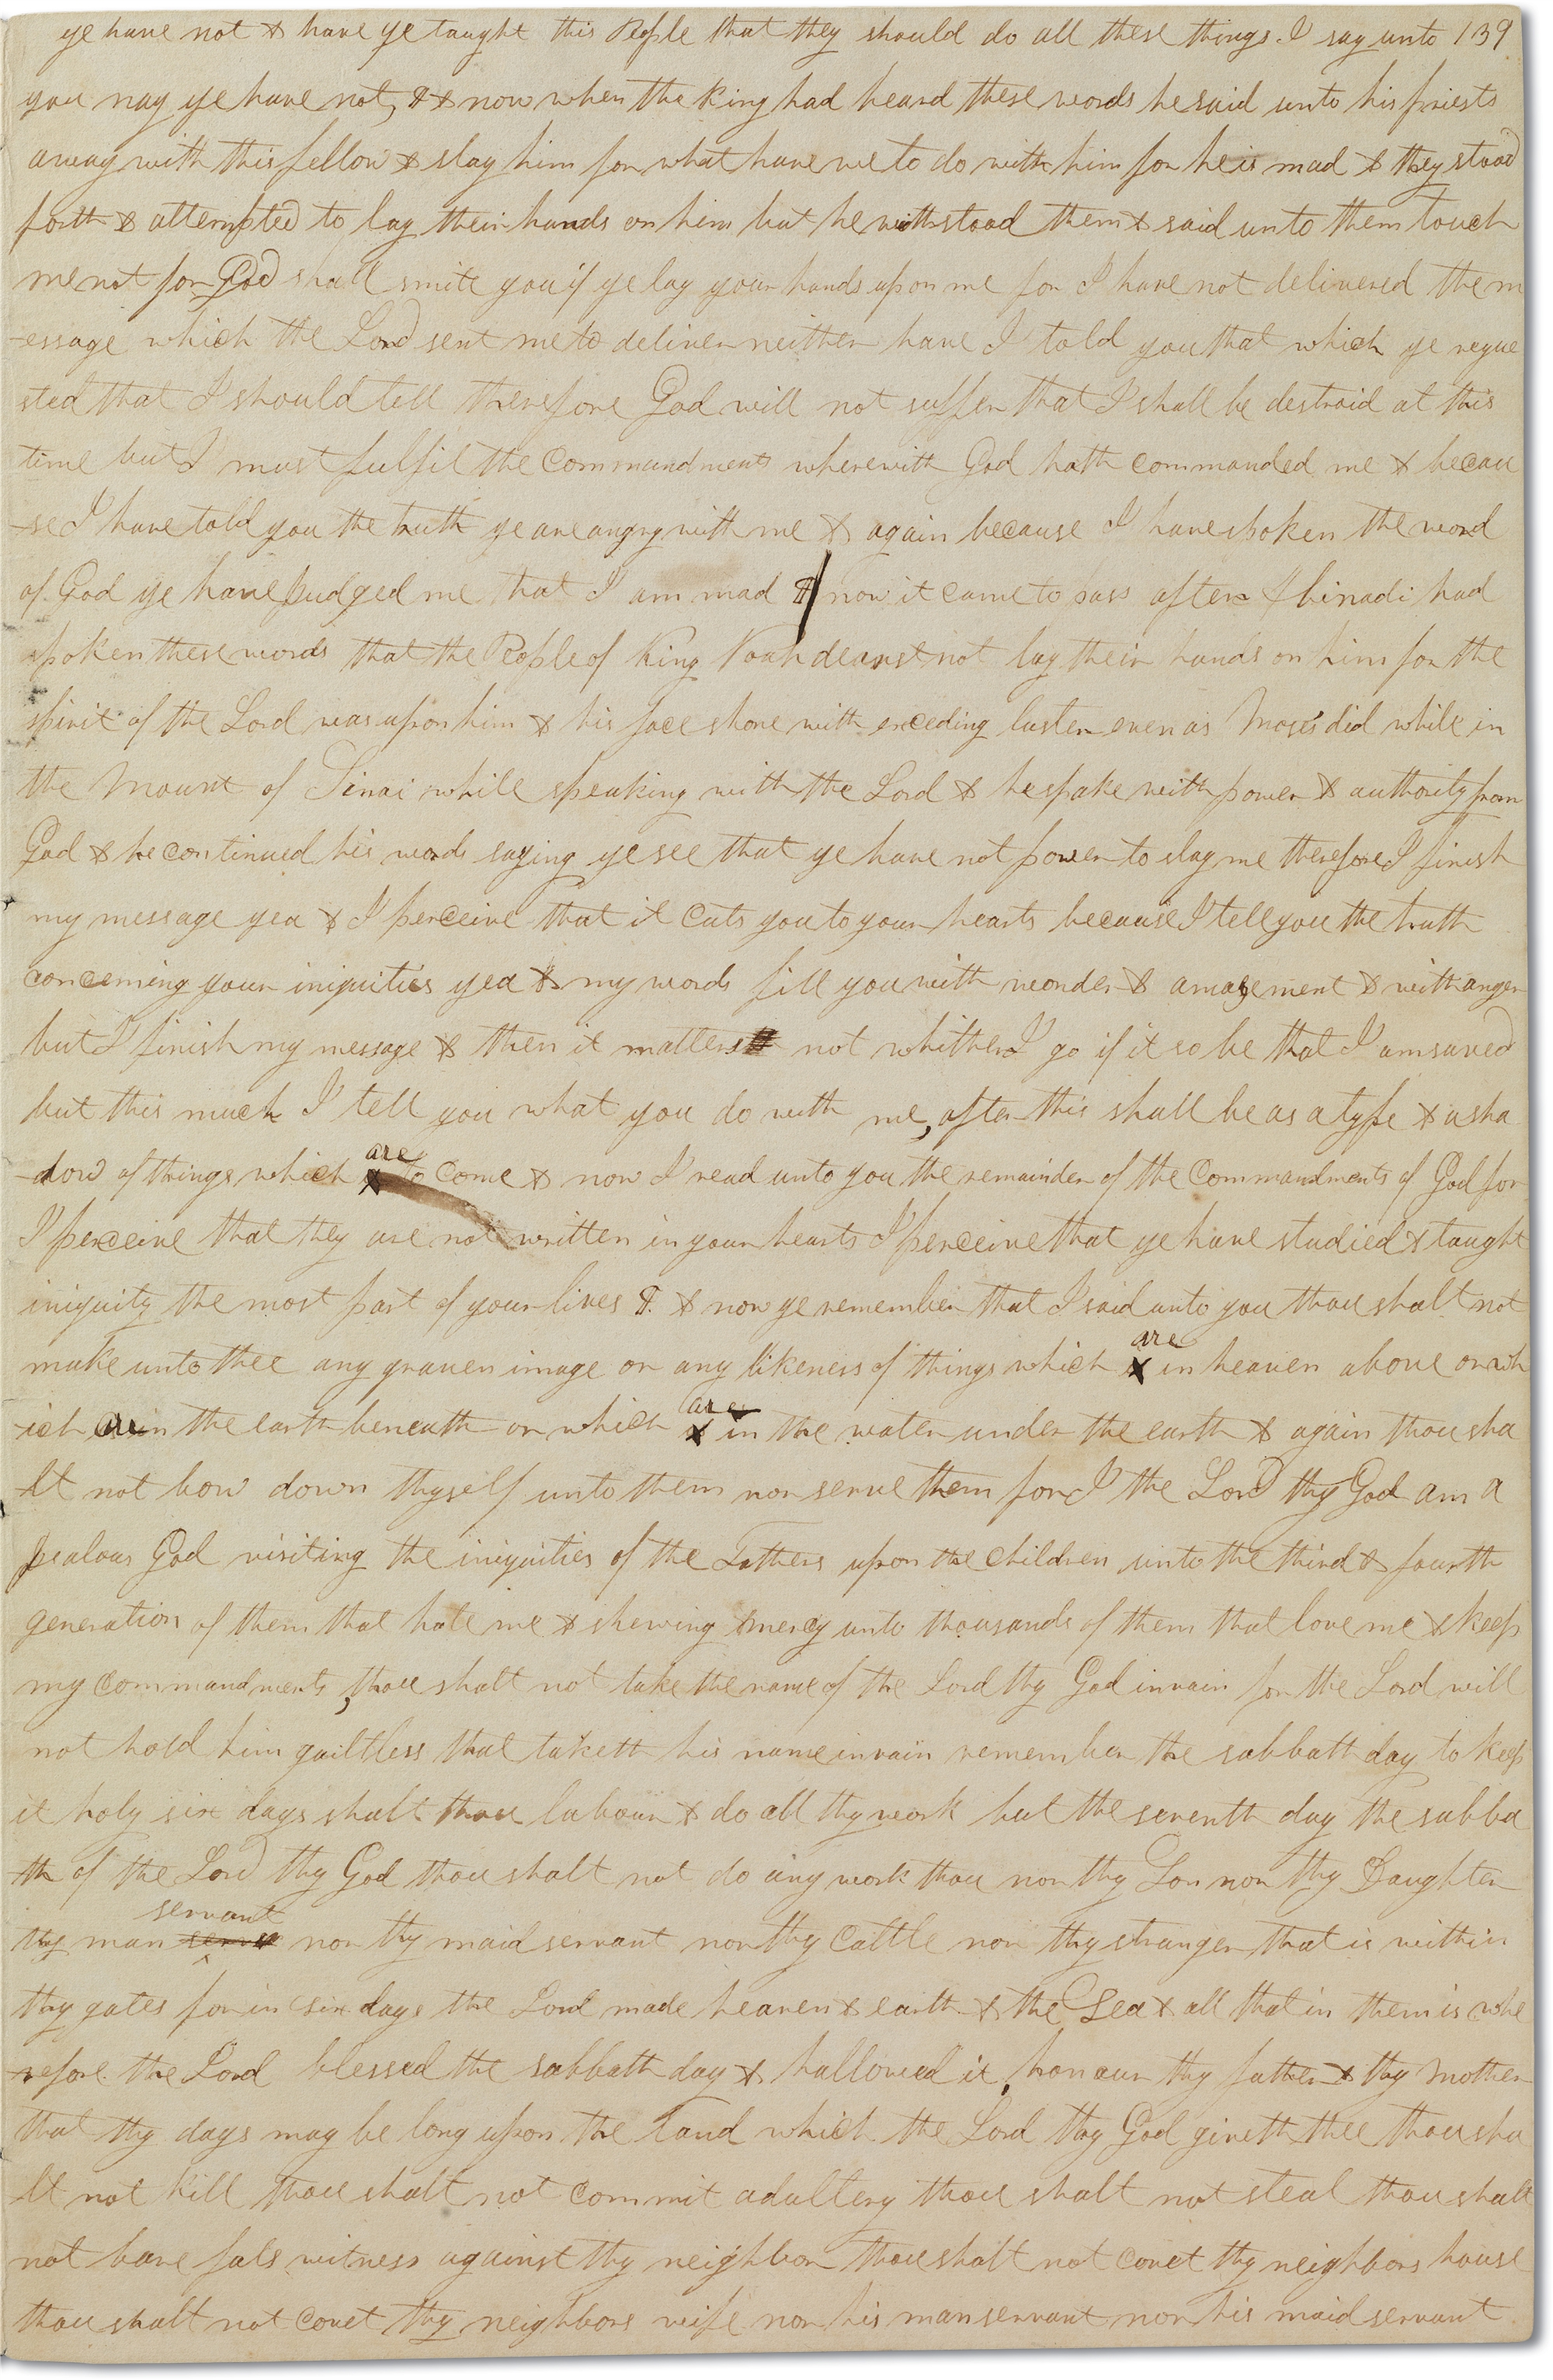 ye have not & have ye taught this People that they should do all these things I say unto 139
you nay ye have not, & now when the King had heard these words he said unto his priests
away with this fellow & slay him for what have we to do with him for he is mad & they stood
forth & attempted to lay their hands on him but he withstood them & said unto them touch
me not for God shall smite you if ye lay your hands upon me for I have not delivered the m
-essage which the Lord sent me to deliver neither have I told you that which ye reque
sted that I should tell therefore God will not suffer that I shall be destroid at this
time but I must fulfil the commandments wherewith God hath commanded me & becau
-se I have told you the truth ye are angry with me & again because I have spoken the word
of God ye have judged me that I am mad now it came to pass after Abinadi had
spoken these words that the People of King Noah dearst not lay their hands on him for the
spirit of the Lord was upon him & his face shone with exceding luster even as Moses did while in
the Mount of Sinai while speaking with the Lord & he spake with power & authority from
God & he continued his words saying ye see that ye have not power to slay me therefore I finish
my message yea & I perceive that it cuts you to your hearts because I tell you the truth
concerning your iniquities yea & my words fill you with wonder & amazement & with anger
but I finish my message & then it matters not whither I go if it so be that I am saved
but this much I tell you what you do with me, after this shall be as a type & a sha
-dow of things which are to come & now I read unto you the remainder of the commandments of God for
I perceive that they are not written in your hearts I perceive that ye have studied & taught
iniquity the most part of your lives & now ye remember that I said unto you thou shalt not
make unto thee any graven image or any likeness of things which are in heaven above or wh
-ich are in the earth beneath or which are in the water under the earth & again thou sha
-lt not bow down thyself unto them nor serve them for I the Lord thy God am a
jealous God visiting the iniquities of the Fathers upon the children unto the third & fourth
generation of them that hate me & shewing mercy unto thousands of them that love me & keep
my commandments, thou shalt not take the name of the Lord thy God in vain for the Lord will
not hold him guiltless that taketh his name in vain remember the sabbath day to keep
it holy six days shalt thou labour & do all thy work but the seventh day the sabba
-th of the Lord thy God thou shalt not do any work thou nor thy Son nor thy Daughter
thy man servant nor thy maid servant nor thy cattle nor thy stranger that is within
thy gates for in six days the Lord made heaven & earth & the Sea & all that in them is whe
-refore the Lord blessed the sabbath day & hallowed it, honour thy father & thy Mother
that thy days may be long upon the land which the Lord thy God giveth thee thou sha
-lt not kill thou shalt not commit adultery thou shalt not steal thou shalt
not bare fals witness against thy neighbor thou shalt not covet thy neighbors house
thou shalt not covet thy neighbors wife nor his man servant nor his maid servant